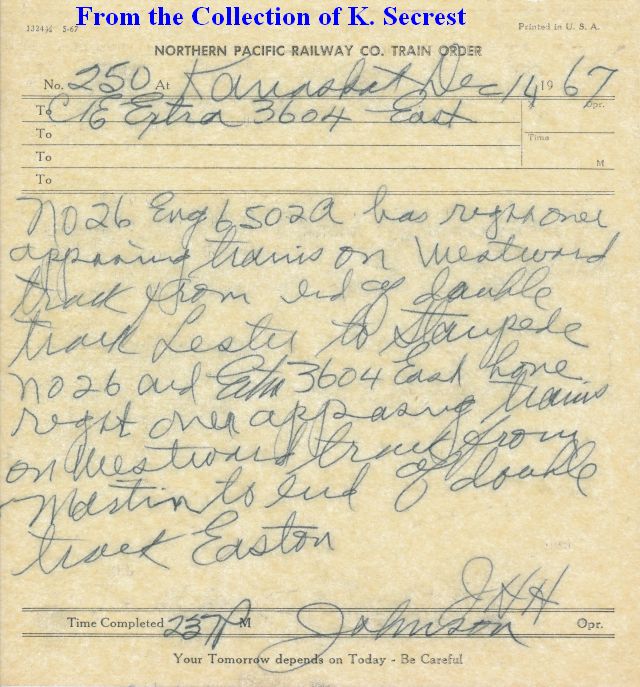 From the Collection of K. Secrest
1324½ 5-67
Printed in U. S. A.
NORTHERN PACIFIC RAILWAY CO. TRAIN ORDER
No. 250 At Kanaskat Dec 14 1967
To C&E Extra 3604 East
X Opr.
To
Time
To
M
To
No 26 Eng 6502A has right over
opposing trains on Westward
track from end of double
track Lester to Stampede
No 26 and Extra 3604 East have
right over opposing trains
on Westward track from
Martin to end of double
track Easton
JHH
Time Completed 257P M Johnson Opr.
Your Tomorrow depends on Today - Be Careful